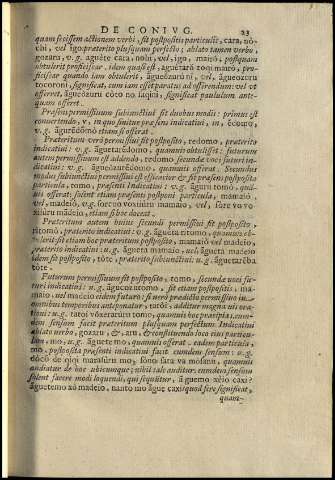 DE CONIVG. 23
quam fecissem actionem verbi, sit postpositis particulis, cara, no-
chi, vel igo præterito plusquam perfecto; ablato tamen verbo,
gozaru, v.g. aguête cara, nochi, vel, igo, maiô, postquam
obtulerit proficiscar. idem quasi est, aguetarô tomo mairô, pro-
ficiscar quando iam obtulerit,
tocoroni, significat, cum iam esset paratus ad offerendum: vel vt
offerret, significat paululum ante-
quam offerret.
Præsens permissiuum subiunctiui sit duobus modis: primus est
conuertendo, v, in quo finitur præsens indicatiui, in, edomo,
v.g. etiam si offerat.
Præteritum verò permissiuum sit postposito, redomo, præterito
indicatiui: v.g. quamuis obtulisset: futurum
autem permissiuum est addendo, redomo secundæ voci futuri in-
dicatiui: v.g. quamuis offerat. Secundus
modus subiunctiui permissiui est efficiter sit præsens postposita
particula, tomo, præsenti Indicatiui: v.g. tomo, qua-
uis offerat: solent etiam præsenti postponi particula, mamaio
vel, madeiô, v.g. vel, sore vo vo-
xiuru mâdeio, etiam si hoc doceat.
Præteritum autem huius secundi permissiui sit postposito,
ritomo, præterito indicatiui: v.g. aguêta ritomo, quamuis ob-
tulerit: sit etiam hoc præteritum postposito, mamaiô vel madeio
præterito indicatiui: v.g. agueta mamaio, vel: aguêta madeio
idem sit postposito, tôte, præterito subiunctiui: v.g. aguetarêba
tôte.
Futurum permissiuum sit postposito, tomo, secundæ voci fu-
turi indicatiui: v.g. sit etiam postpositis, ma-
maio vel madeio eidem futuro; si verò prædicto permissiuo in
omnibus temporibus anteponatur, tatoi: additur magna vis ora-
tioni: v.g. tatoi quamuis hoc præcipiat. eum-
dem sensum facit præteritum plusquam perfectum Indicatiui
ablato verbo, gozaru, & ,ra, & constituendo loco eius particu-
lam, mo, v.g. aguête mo, quamuis offerat. eadem particula,
mo, postposita præsenti indicatiui facit eumdem sensum: v.g.
quamuis
audiatur de hoc vbicumque; nihil tale auditur. eumdem sensum
solent facere modi loquendi, qui sequitur, âguemo xeio caxi?
âguetemo aô madeio, nanto mo âgue caxi quod fere significat,
quam-